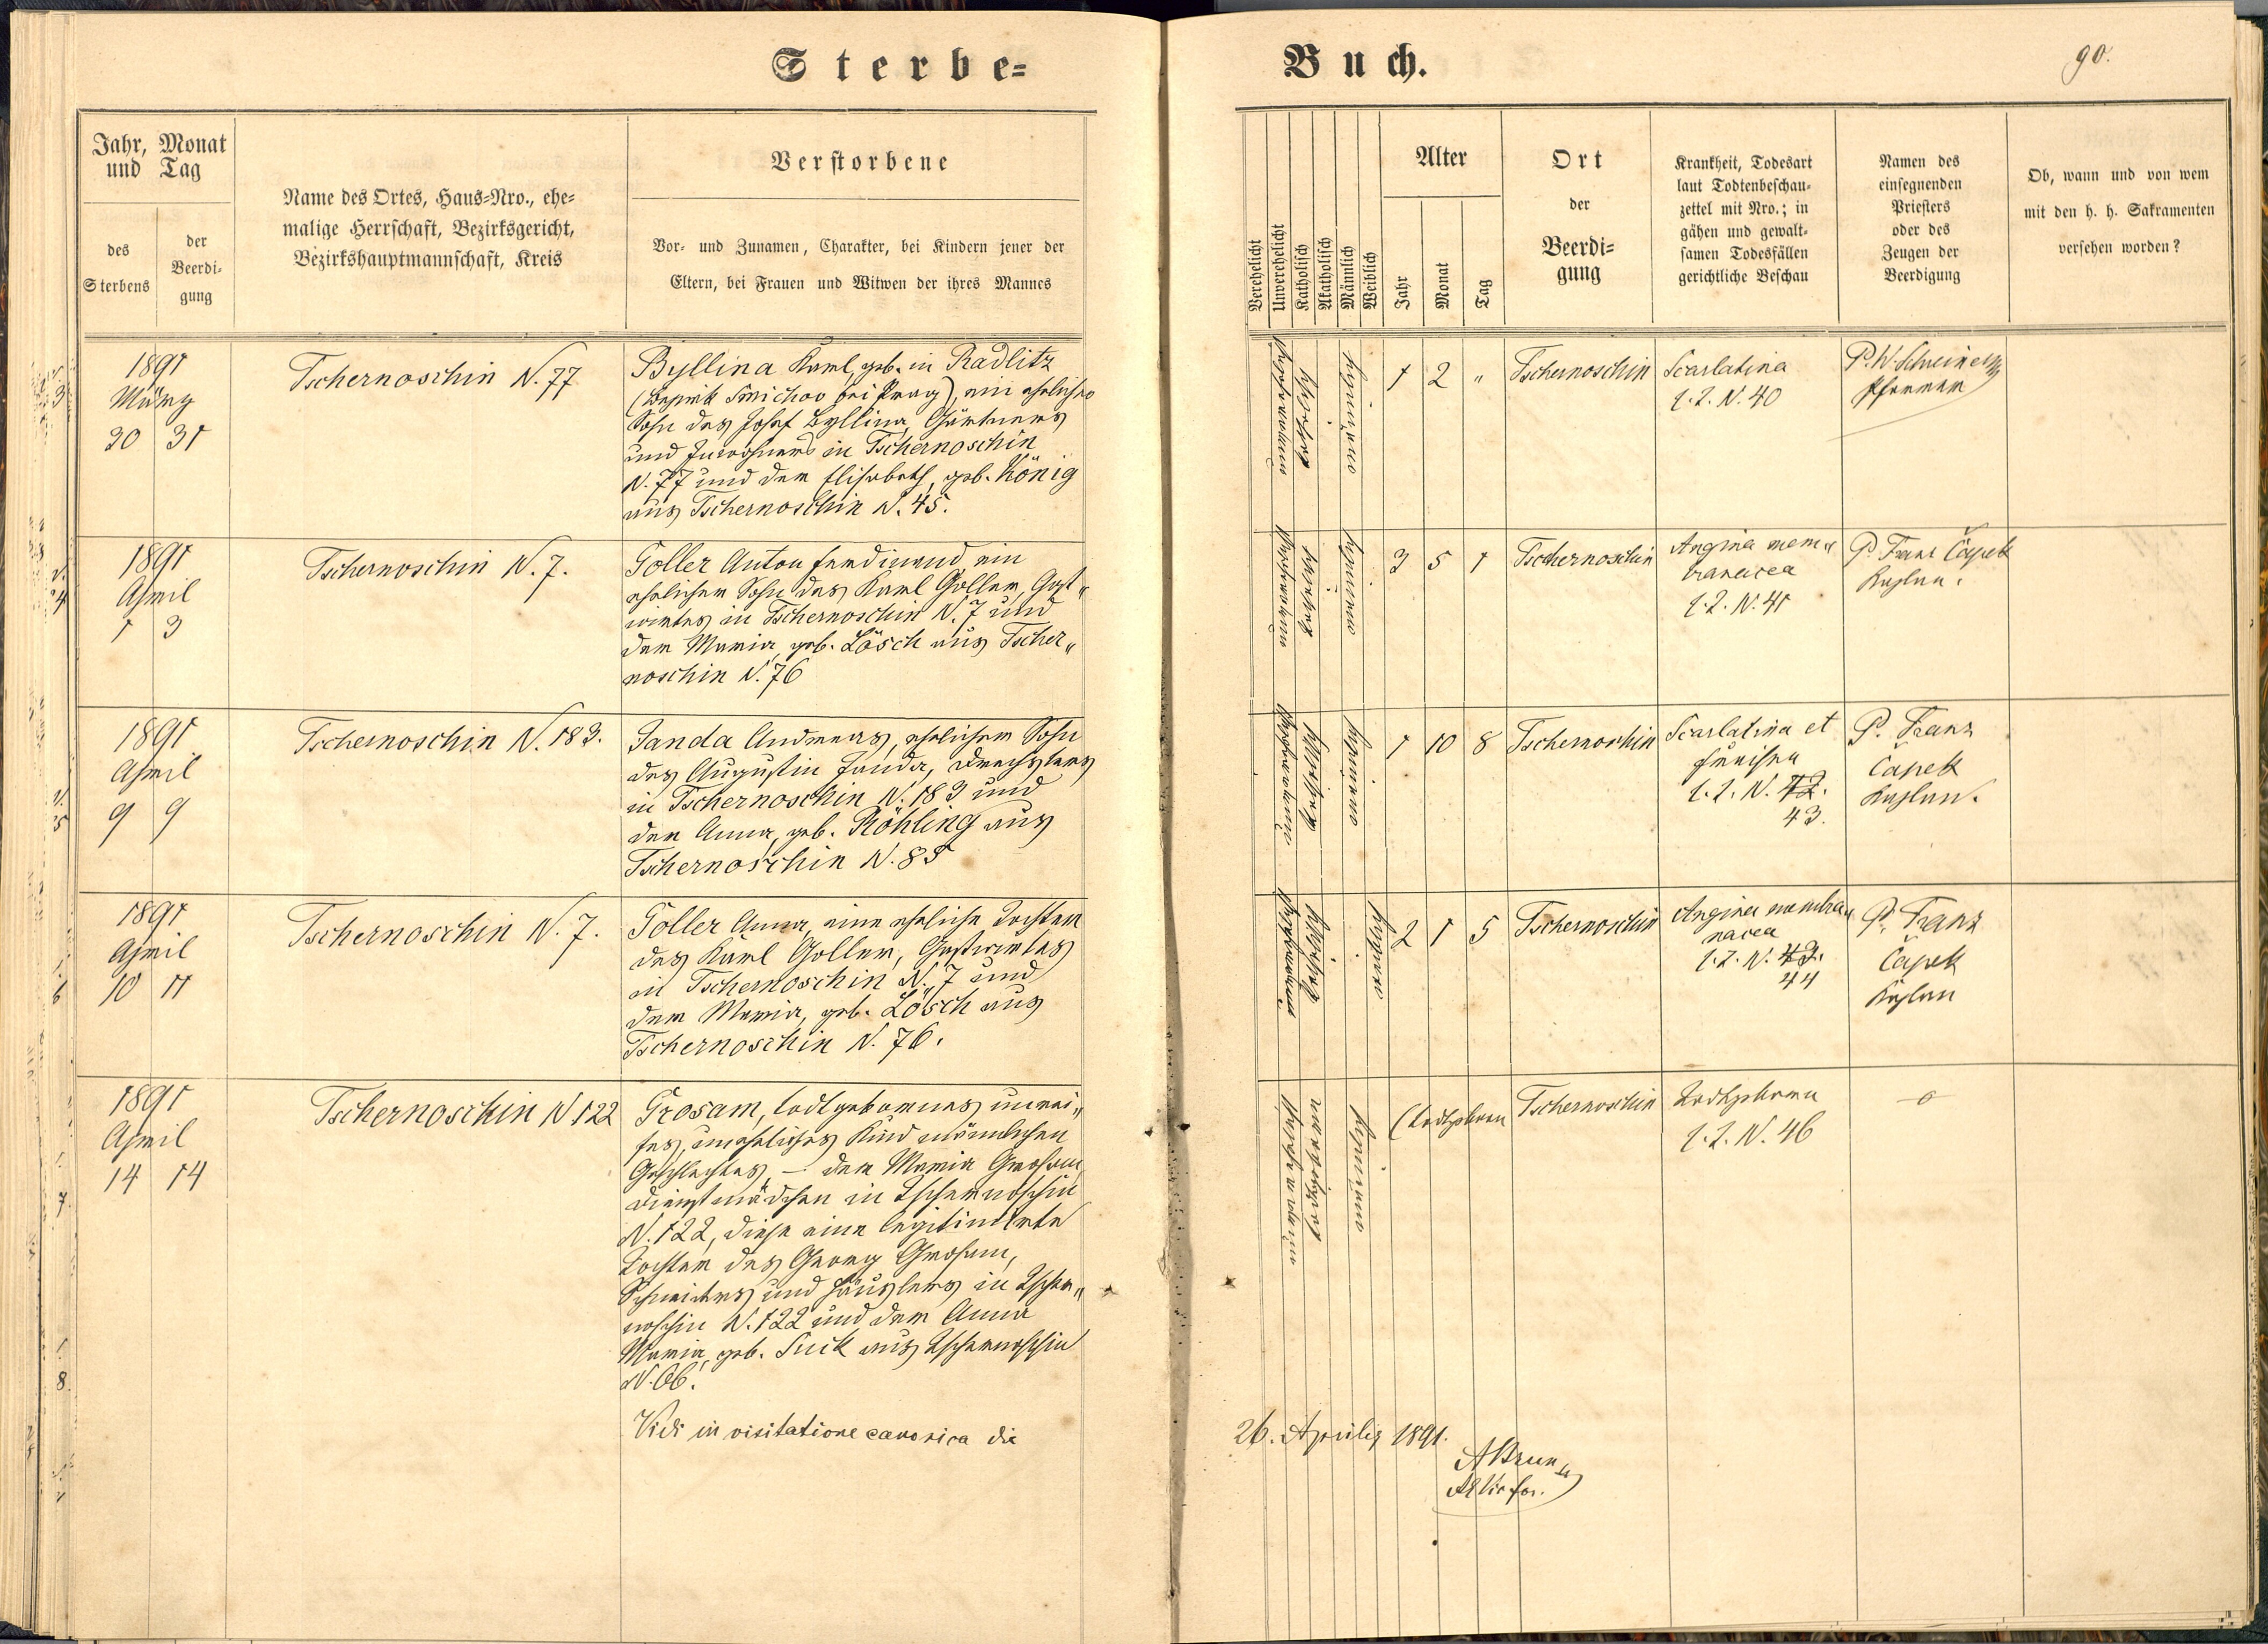 Sterbe=
Buch.
90.
Jahr, Monat
und Tag
des
Sterbens
der
Beerdi-
gung
Name des Ortes, Haus-Nro., ehe-
malige Herrschaft, Bezirksgericht,
Bezirkshauptmannschaft, Kreis
Verstorbene
Vor- und Zunamen, Charakter, bei Kindern jener der
Eltern, bei Frauen und Witwen der ihres Mannes
Verehelicht
Unverehelicht
Katholisch
Akatholisch
Männlich
Weiblich
Alter
Jahr
Monat
Tag
Ort
der
Beerdi-
gung
Krankheit, Todesart
laut Todtenbeschau-
zettel mit Nro.; in
gähen und gewalt-
samen Todesfällen
gerichtliche Beschau
Namen des
einsegnenden
Priesters
oder des
Zeugen der
Beerdigung
Ob, wann und von wem
mit den h. h. Sakramenten
versehen worden?
1891
März
30 31
Tschernoschin N. 77
Byllina Karl, geb. in Radlitz
(Bezirk Smichov bei Prag), ein ehelicher
Sohn des Josef Byllina, Gärtners
und Inwohners in Tschernoschin
N. 77 und der Elisabeth, geb. König
aus Tschernoschin N. 45.
1 2 "
Tschernoschin
Scarlatina
l. Z. N. 40
P. W. Schreiner
Pfarrer
1891
April
1 3
Tschernoschin N. 7.
Goller Anton Ferdinand, ein
ehelicher Sohn des Karl Goller, Gast„
wirtes in Tschernoschin N. 7 und
der Maria, geb. Lösch aus Tscher„
noschin N. 76
3 5 1
Tschernoschin
Angina mem„
branacea
l. Z. N. 41
P. Franz Čapek
Kaplan.
1891
April
9 9
Tschernoschin N. 183.
Janda Andreas, ehelicher Sohn
des Augustin Janda, Drechslers
in Tschernoschin N. 183 und
der Anna, geb. Röhling aus
Tschernoschin N. 85
1 10 8
Tschernoschin
Scarlatina et
l. Z. N. 42.
43.
P. Franz
Čapek
Kaplan.
1891
April
10 11
Tschernoschin N. 7.
Goller Anna, eine eheliche Tochter
des Karl Goller, Gastwirtes
in Tschernoschin N. 7 und
der Maria, geb. Lösch aus
Tschernoschin N. 76.
2 1 5
Tschernoschin
Angina membra„
nacea
l. Z. N. 43.
44
P. Franz
Čapek
Kaplan
1891
April
14 14
Tschernoschin N. 122
Grosam, todtgebornes unrei„
fes, uneheliches Kind männlichen
Geschlechtes — der Maria Grosam,
Dienstmädchen in Tschernoschin
N. 122, diese eine legitimirte
Tochter des Georg Grosam,
Schneiders und Häuslers in Tscher„
noschin N. 122 und der Anna
Maria, geb. Suck aus Tschernoschin
N. 66.
(todtgeboren
Tschernoschin
Todtgeboren
l. Z. N. 46
—o—
Vidi in visitatione canonica die
26. Aprilis 1891.